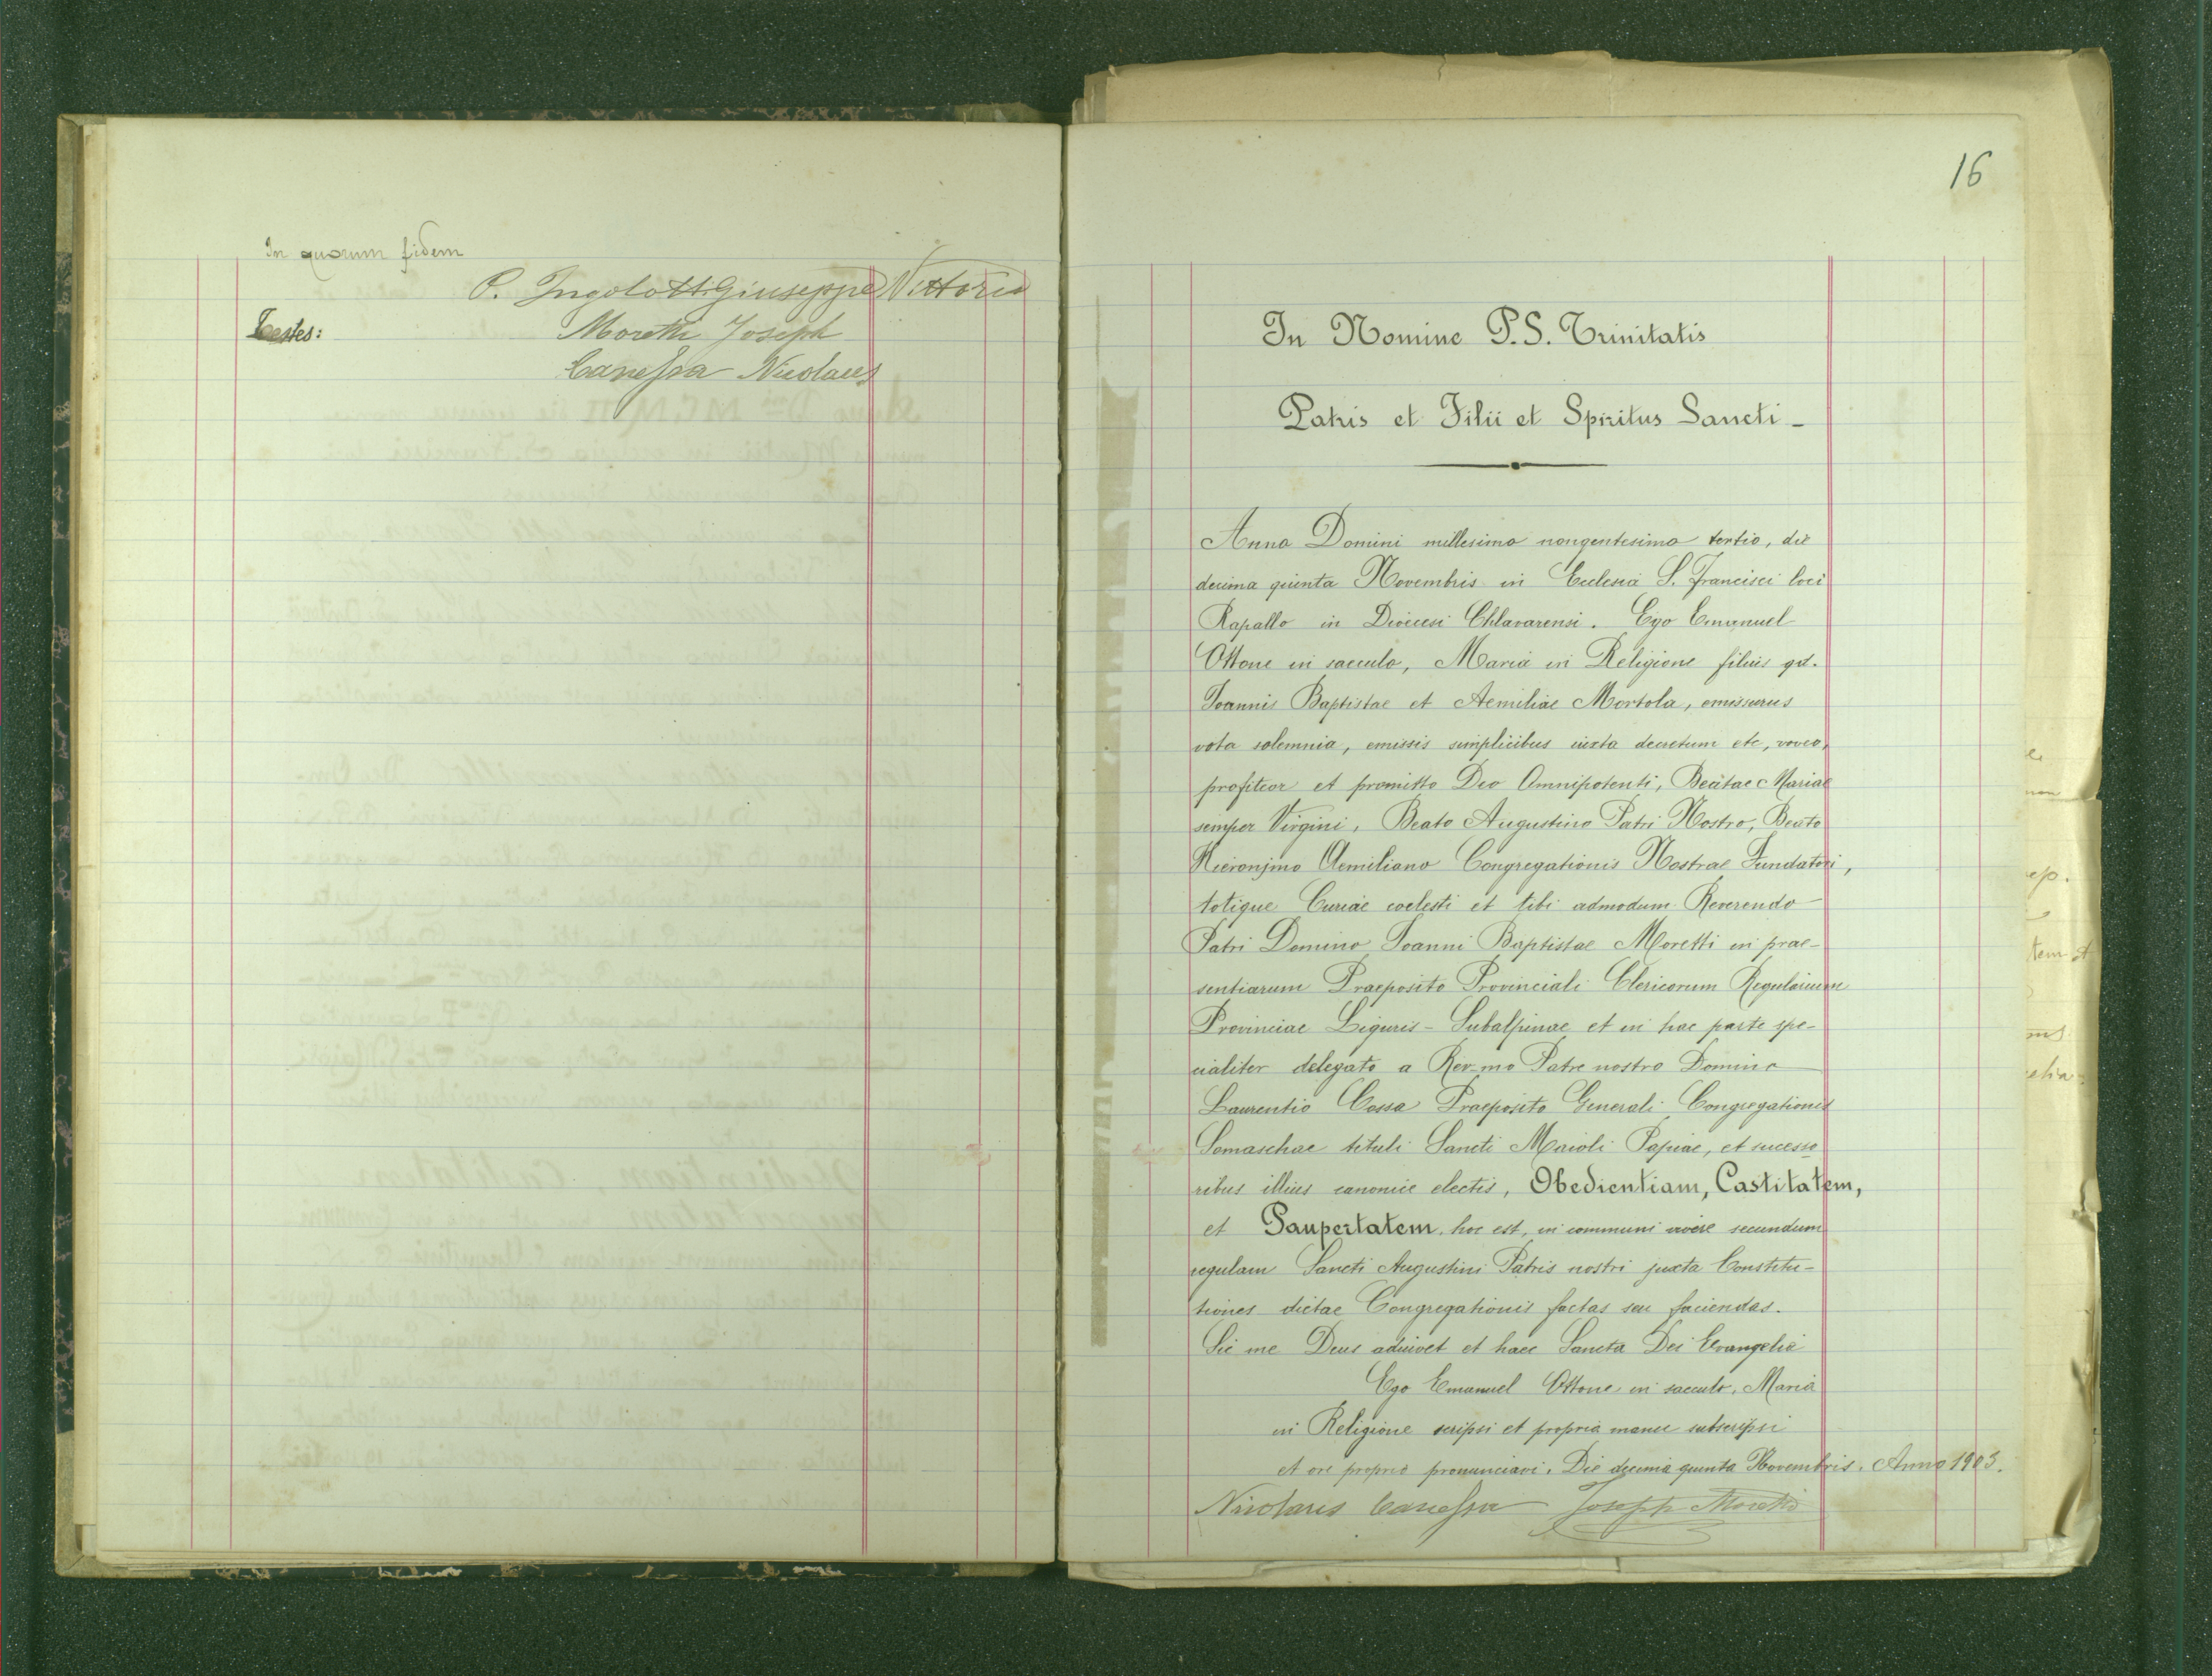 In quorum fidem
P. Ingolotti Giuseppe Vittorio
Testes:
Moretti Joseph
Canessa Nicolaus
16
In Nomine P.S. Trinitatis
Patris et Filii et Spiritus Sancti -
Anno Domini millesimo nongentesimo tertio, die
decima quinta Novembris in Ecclesia S. Francisci loci
Rapallo in Diocesi Chlavarensi. Ego Emanuel
Ottone in saeculo, Maria in Religione filius qd.
Joannis Baptistae et Aemiliae Mortola, emissurus
vota solemnia, emissis simplicibus iuxta decretum etc, voveo,
profiteor et promitto Deo Omnipotenti, Beatae Mariae
semper Virgini, Beato Augustino Patri Nostro, Beato
Hieronjmo Aemiliano Congregationis Nostrae Fundatori,
totique Curiae coelesti et tibi admodum Reverendo
Patri Domino Joanni Baptistae Moretti in prae-
sentiarum Praeposito Provinciali Clericorum Regularium
Provinciae Liguris-Subalpinae et in hac parte spe-
cialiter delegato a Rev-mo Patre nostro Domino
Laurentio Cossa Praeposito Generali Congregationis
Somaschae tituli Sancti Maioli Papiae, et sucesso
ribus illius canonice electis, Obedientiam, Castitatem,
et Paupertatem, hoc est, in communi vivere secundum
regulam Sancti Augustini Patris nostri juxta Constitu-
tiones dictae Congregationis factas seu faciendas.
Sic me Deus adiuvet et haec Sancta Dei Evangelia
Ego Emanuel Ottone in saeculo, Maria
in Religione scripsi et propria manu subscripsi
et ore proprio pronunciavi. Die decima quinta Novembris. Anno 1903.
Nicolaus Canessa Joseph Moretti